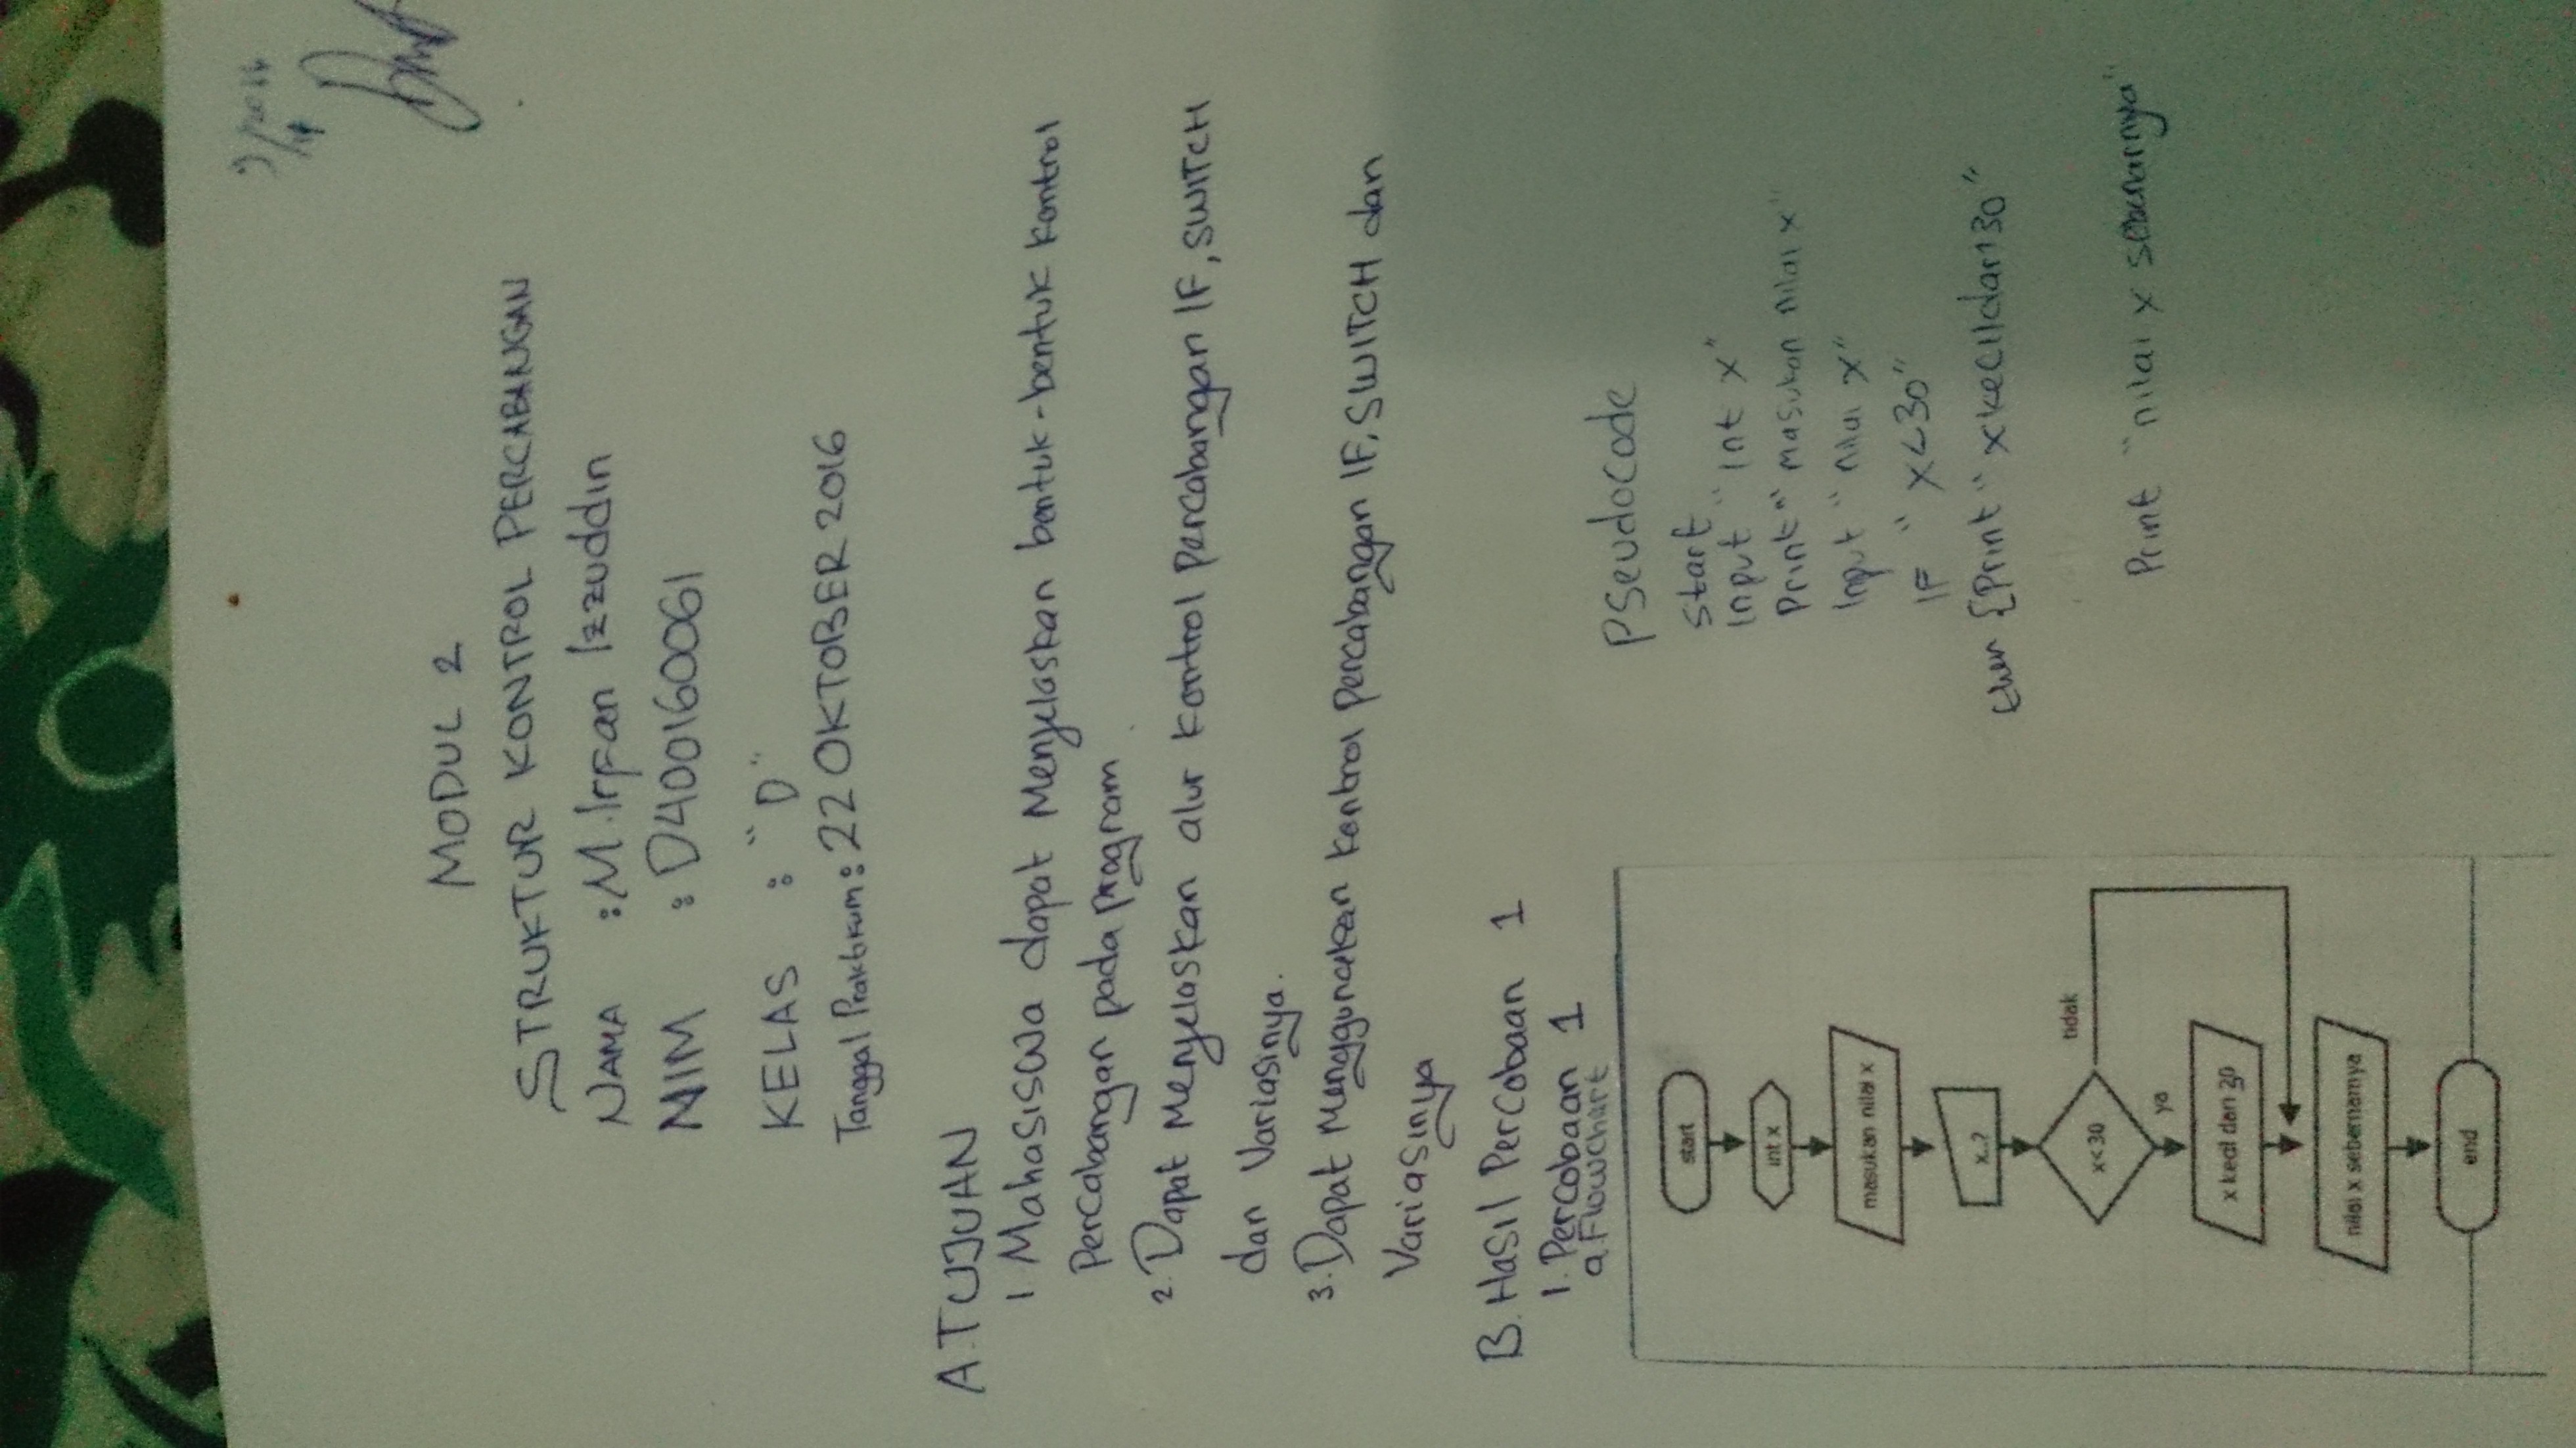 MODUL 2
STRUKTUR KONTROL PERCABANGAN
NAMA : M. Irfan Izzuddin
NIM : D400160061
KELAS : "D"
Tanggal Praktikum : 22 OKTOBER 2016
A. TUJUAN
1 Mahasiswa dapat Menjelaskan bentuk-bentuk kontrol
Percabangan pada program
2. Dapat Menjelaskan alur kontrol percabangan IF, SWITCH
dan Variasinya.
3. Dapat Menggunakan kontrol percabangan IF, SWITCH dan
Variasinya
B. Hasil Percobaan 1
1. Percobaan 1
a. Flowchart
start
int x
masukan nilai x
x..?
x<30
tidak
ya
x kecil dari 30
nilai x sebernarnya
end
Pseudocode
start
Input "Int x"
Print "masukan nilai x"
Input "nilai x"
IF "x<30"
then {Print "x kecil dari 30"
Print "nilai x sebenarnya"